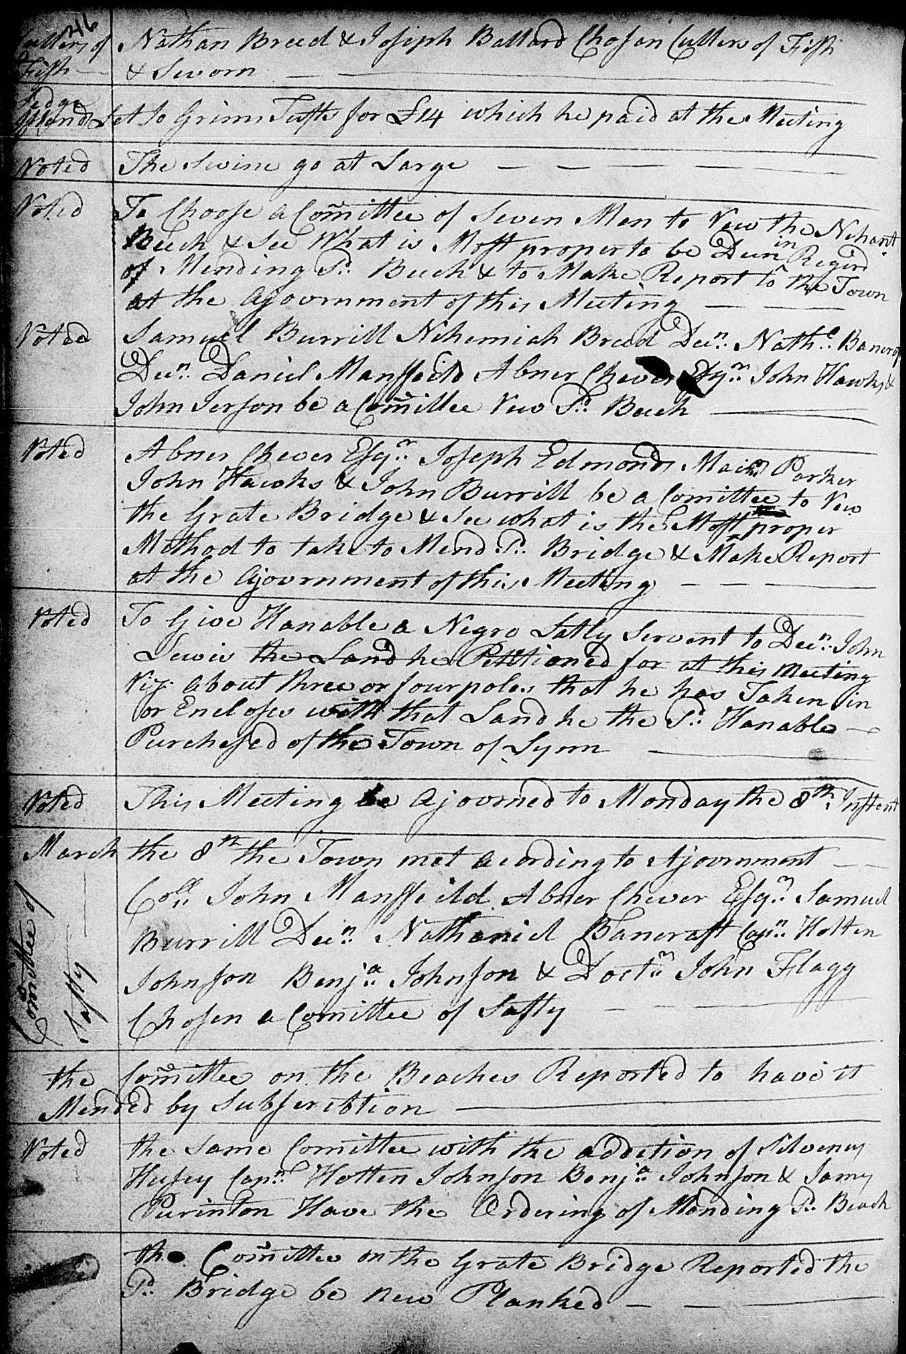 216
Cullers of Nathan Breed & Joseph Ballard Chosan Cullers of Fish
Fish & Sworn
Sedge
Island Let to Grims Tufts for £14 which he paid at the Meeting
Voted The Swine go at Large
Voted To Choose a Comittee of Seven Men to Vew the Nehant
Beech & See What is Most proper to be Dun in Regard
of Mending Sd. Beech & to Make Report to the Town
at the Ajovernment of this Meeting
Voted Samuel Burrill Nehemiah Breed Decn. Nathl. Bancroft
Decn. Daniel Mansfield Abner Chever Esqr. John Hawks &
John Jerson be a Comittee Vew Sd. Beech
Voted Abner Chever Esqr. Joseph Edmonds Parker
John Hawks & John Burrill be a Comittee to Vew
the Grate Bridge & See what is the Most proper
Method to take to Mend Sd. Bridge & Make Report
at the Ajovernment of this Meeting
Voted To Give Hanable a Negro Latly Servent to Decn. John
Lewis the Land he Petitioned for at this Meeting
Viz. about three or four poles that he has Taken in
or Encloses with that Land he the Sd. Hanable
Purchased of the Town of Lynn
Voted This Meeting be Ajovrned to Monday the 8th. Instent
March the 8th the Town met acording to Ajovernment
Comittee of Safty
Coll. John Mansfeild Abner Chever Esqr. Samuel
Burrill Decn. Nathaniel Bancraft Capn. Holten
Johnson Benja. Johnson & Doctr. John Flagg
Chosen a Comittee of Safty
the Comittee on the Beaches Reported to have it
Mended by Subscribtion
Voted the same Comittee with the addetion of Silvenus
Husey Capn. Holten Johnson Benja. Johnson & James
Purinton Have the Ordering of Mending Sd. Beach
the Comittee on the Grate Bridge Reported the
Sd. Bridge be new Planked